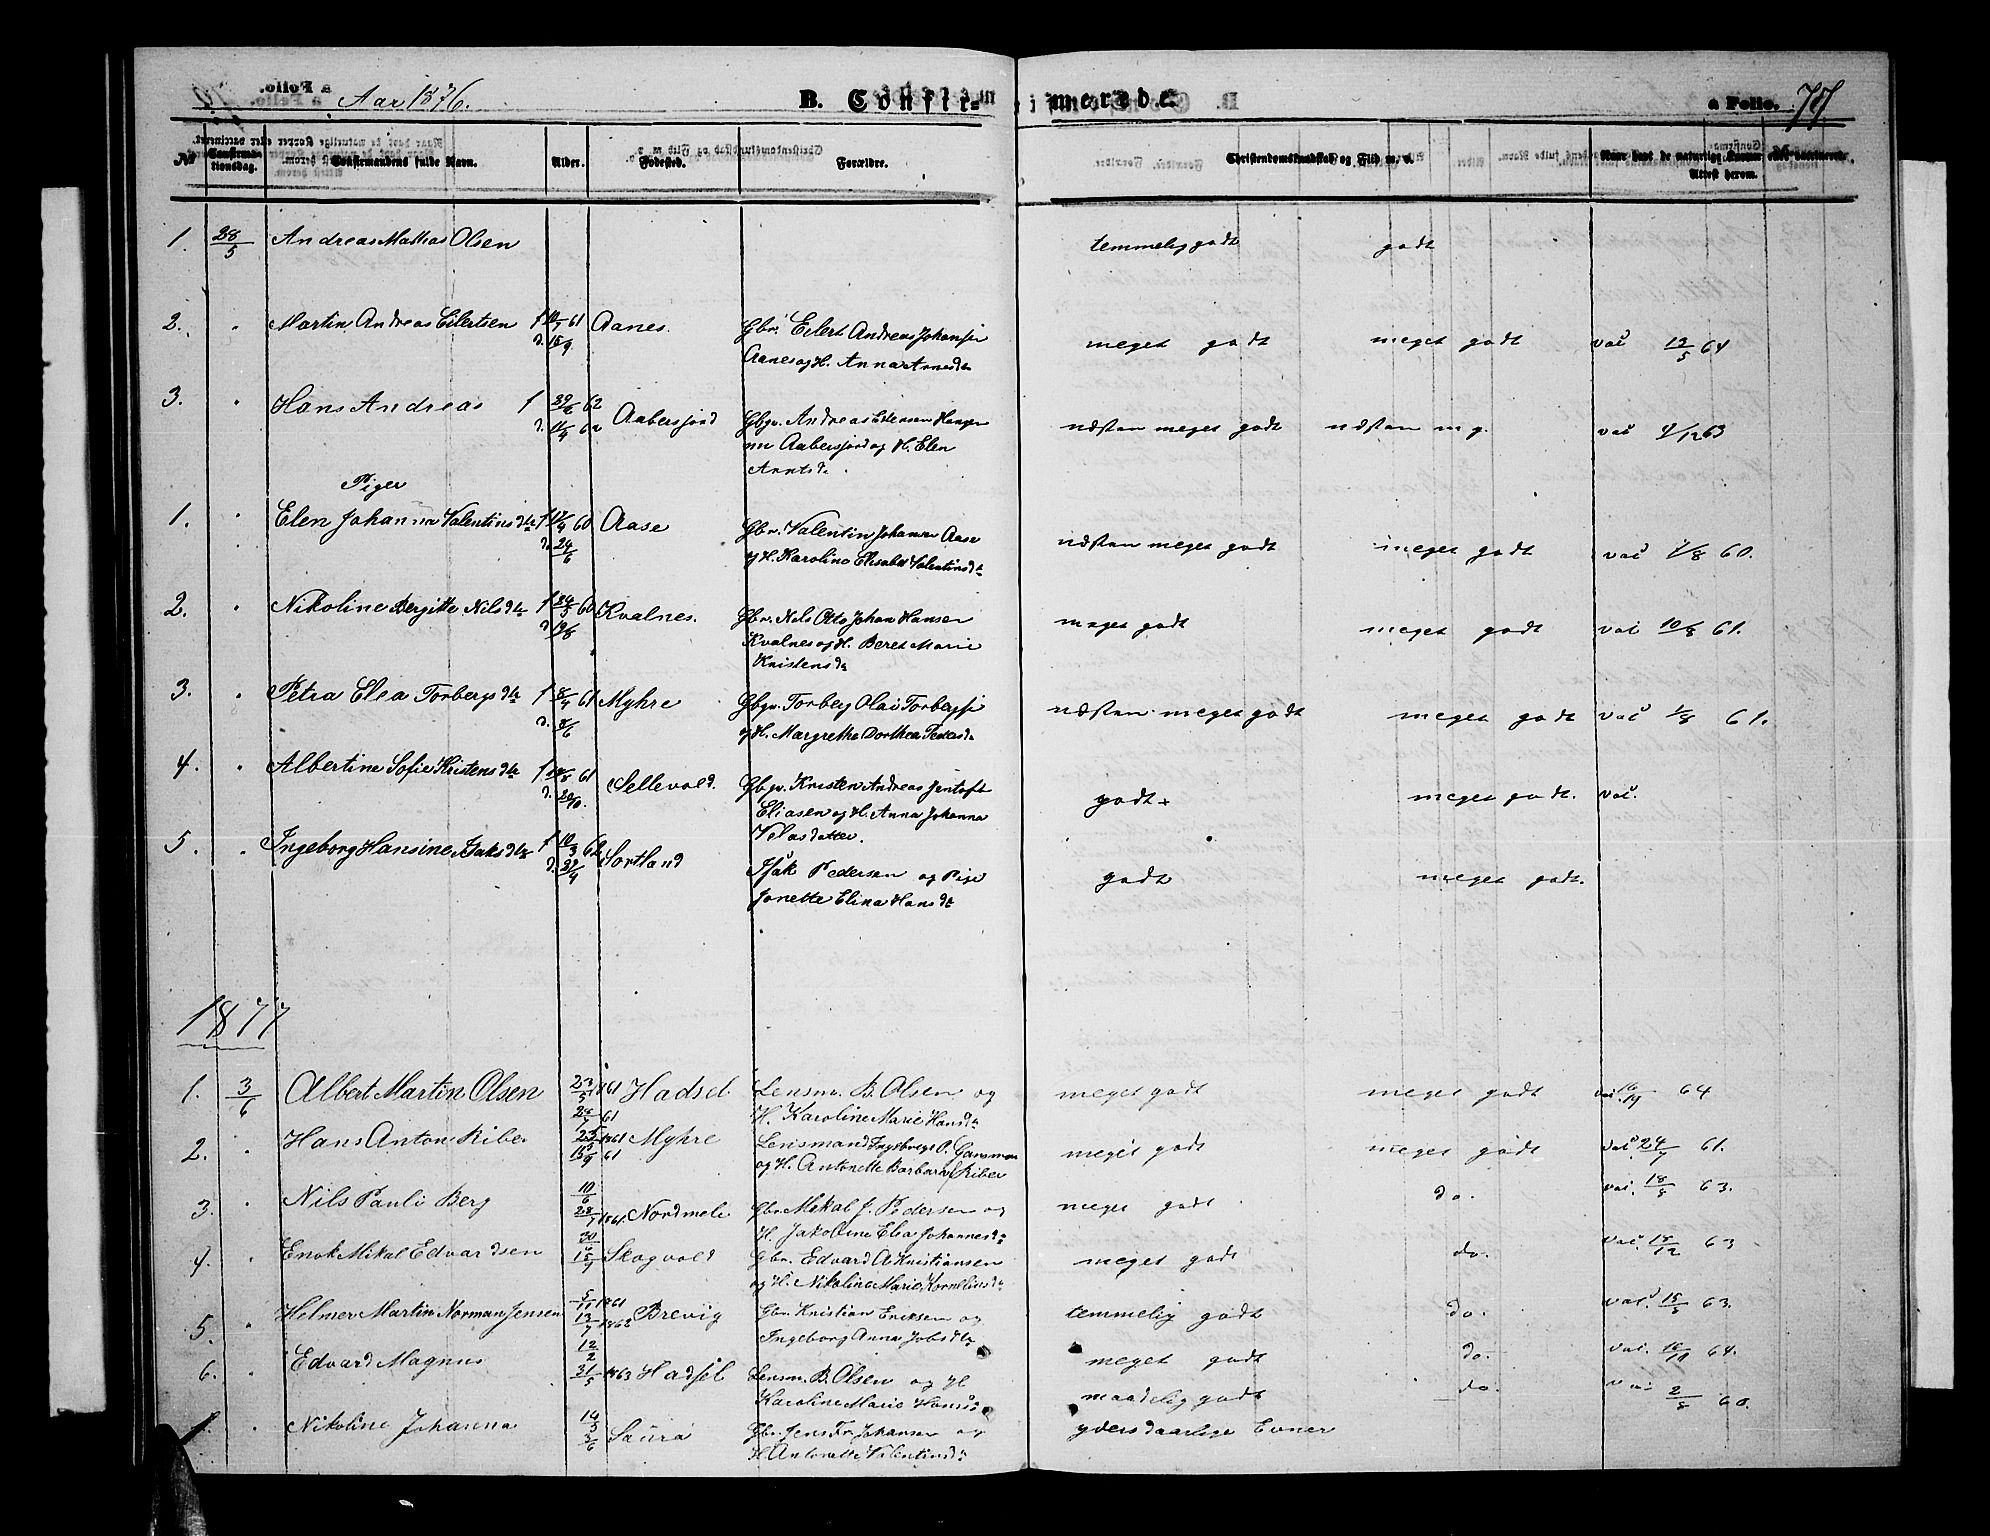 Aar 1876.
B. Confir-merede.
a Folio. 77.
No
Confirmationsdag.
Confirmandens fulde Navn.
Alder.
Fødested.
Forældre.
Christendomskundskab og Flid m. v.
Naar havt de naturlige Kopper eller vaccineret. Attest herom.
1. 28/5 Andreas Mathias Olsen temmelig godt godt
2. " Martin Andreas Eilertsen f 10/7 61 Aanes. Gbr. Eilert Andreas Johansen meget godt meget godt vac 12/5 64
d. 15/9 Aanes og H. Anna Arnesdtr
3. " Hans Andreas f 29/6 62 Aabersjord Gbgr. Andreas Edersen Haagen næsten meget godt næsten m g. vac 4/12 63
Aabersjord og H. Elen
Arntsdr.
Piger
1. " Elen Johanna Valentinsdtr f 17/4 60 Aase Gbr. Valentin Johansen Aase næsten meget godt meget godt vac 1/8 60.
d. 24/6 og H. Karoline Elisabet Valentinsdtr
2. " Nikoline Bergitte Nilsdtr f 24/5 60 Kvalnes. Gbr. Nels Otto Johan Hansen meget godt meget godt vac 10/8 61.
d. 19/8 Kvalnes og H. Beret Marie
Kristensdr
3. " Petra Elea Torbergsdtr f 8/4 61 Myhre Gbgr. Torberg Olai Torbergse næsten meget godt meget godt vac 1/8 61.
og H. Margrethe Dorthea Pedersdr
4. " Albertine Sofie Kristensdtr f 61 Sellevold. Gbgr. Kristen Andreas Jentoft godt + meget godt. vac.
d. 20/10. Eliasen og H. Anna Johanna
Velasdatter.
5. " Ingeborg Hansine Isaksdtr f 10/3 62 Sortland Isak Pedersen og Pige godt meget godt.
d. Jonette Elina Hansdtr
1877
1. 3/6 Albert Martin Olsen 23/5 1861 Hadsel Lensm. B. Olsen og meget godt meget godt vac. 16/9 64
61 H. Karoline Marie Hansdr
2. " Hans Anton Riber 1861 Myhre Lensmand Ingebregt O. Gansmoe meget godt meget godt vac 24/7 61.
61 og H. Antonette Barbara f. Riber
3. " Nils Pauli Berg 10/6 Nordmele Gbr. Mikal J. Pedersen og meget godt do. vac. 18/8 63.
28/7 1861. H. Jakobine Elea Johannesdr
4. " Enok Mikal Edvardsen 30/6 Skogvold Gbr. Edvard A Kristiansen meget godt do. vac. 18/12 63
15/7 og H. Nikoline Marie Kornelinsdr
5. " Helmer Martin Norman Jensen 5/11 1861 Brevig Gbr. Kristian Eriksen og temmelig godt do. vac. 15/8 63.
13/7 1862 Ingeborg Anna Jobsdtr
6. " Edvard Magnus 12/2 Hadsel Lensm. B. Olsen og H meget godt do. vac. 16/11 64.
31/5 1863 Karoline Marie Hansdr maadelig godt do. vac 2/8 60.
1. " Nikoline Johanna 14/3 Saura Gbr. Jens Fr. Johansen og yders daarlige Evner
3/6 H Antonette Valentinsdr